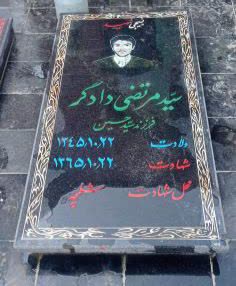 شهید
سید مرتضی دادگر
فرزند سید حسین
ولادت ۱۳۴۵،۱۰،۲۲
شهادت ۱۳۶۵،۱۰،۲۲
محل شهادت شلمچه